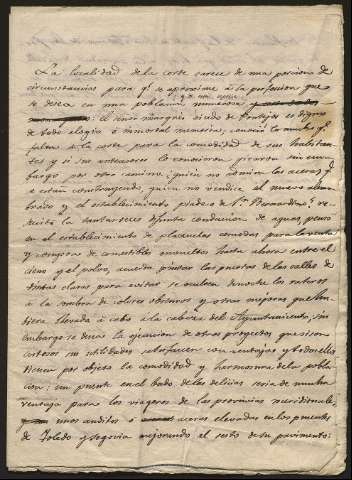 La localidad de la corte carece de una porcion de
circunstancias para q.e se aproxime á la perfeccion que
se desea en una poblacion numerosa
el señor marques viudo de Pontejos es digno
de todo elogio é inmortal memoria, conoció lo mucho q.e
falta á la corte para la comodidad de sus habitan-
tes y si sus antecesores lo conocieron giraron sin em-
bargo por otro camino; quien no admira las aceras q.e
se estan construyendo, quien no vendice el nuevo alum-
brado y el establecimiento piadoso de S.n Bernardino;
la tantas veces difunta conducion de aguas, penso
en el establecimiento de plazuelas comodas para la venta
y compra de comestibles envueltos hasta ahora entre el
cieno y el polvo, acordo pintar las puertas de las calles de
tintas claras para evitar se oculten de noche los rateros
á la sombra de colores obscuros y otras mejoras que hu-
biera llevado á cabo á la cabeza del Ayuntamiento, sin
embargo se desea la ejecucion de otros proyectos que si son
costosos su utilidad satisfacen con ventajas y todos ellos
tienen por objeto la comodidad y hermosura de la pobla-
cion; un puente en el bado de las delicias seria de mucha
ventaja para los viageros de las provincias meridionales
unos anditos ó aceras elevadas en los puentes
de Toledo y Segovia mejorando el resto de su pavimento: